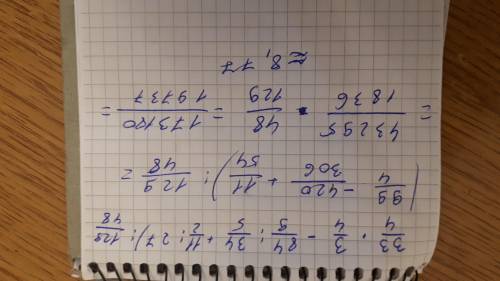 33/4 · 3/4 - 84/9 : 34/5 + 11/2 : 27) : 129/48
(99/4 - 420/306 + 11/54) : 129/48 =
= 43295/1836 · 48/129 = 173180/19737 =
≈ 8,77